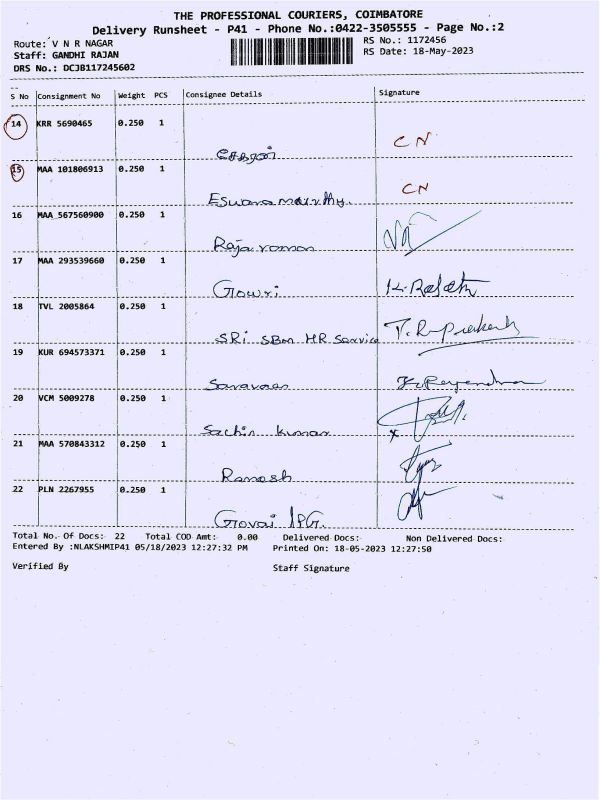 THE PROFESSIONAL COURIERS, COIMBATORE
Delivery Runsheet - P41 - Phone No.:0422-3505555 - Page No.:2
Route: V N R NAGAR
RS No.: 1172456
Staff: GANDHI RAJAN
RS Date: 18-May-2023
DRS No.: DCJB117245602
S No Consignment No Weight PCS Consignee Details Signature
14 KRR 5690465 0.250 1
CN
15 MAA 101806913 0.250 1
CN
Eswaramurthy.
16 MAA 567560900 0.250 1
Raja raman
17 MAA 293539660 0.250 1
Gowri
18 TVL 2005864 0.250 1
SRi SBM HR Service
19 KUR 694573371 0.250 1
K. Rajendran
Saravanan
20 VCM 5009278 0.250 1
Sachin kumar
21 MAA 570843312 0.250 1
Ramesh
22 PLN 2267955 0.250 1
Total No. Of Docs: 22 Total COD Amt: 0.00 Delivered Docs: Non Delivered Docs:
Entered By :NLAKSHMIP41 05/18/2023 12:27:32 PM Printed On: 18-05-2023 12:27:50
Verified By Staff Signature